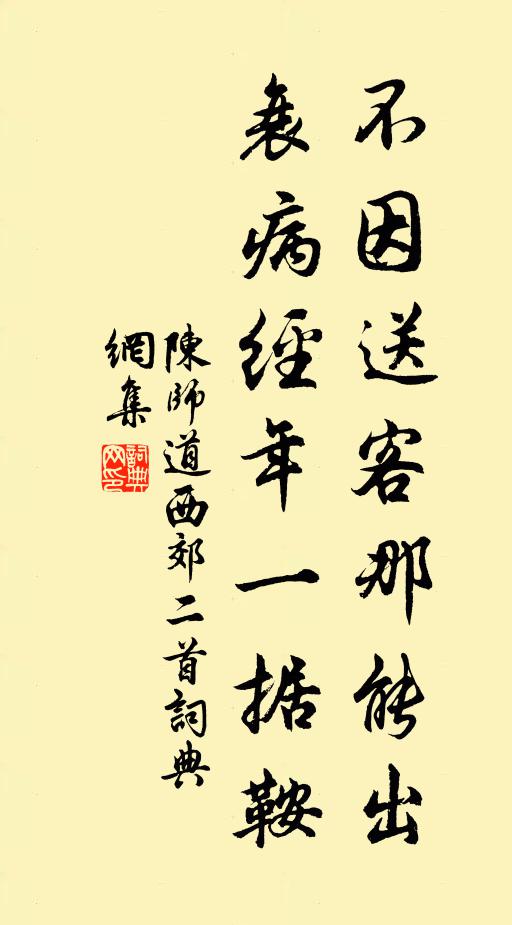 不因送客那能出
衰病經年一据鞍
陳師道西郊二首詞典
網集
詞典
网印